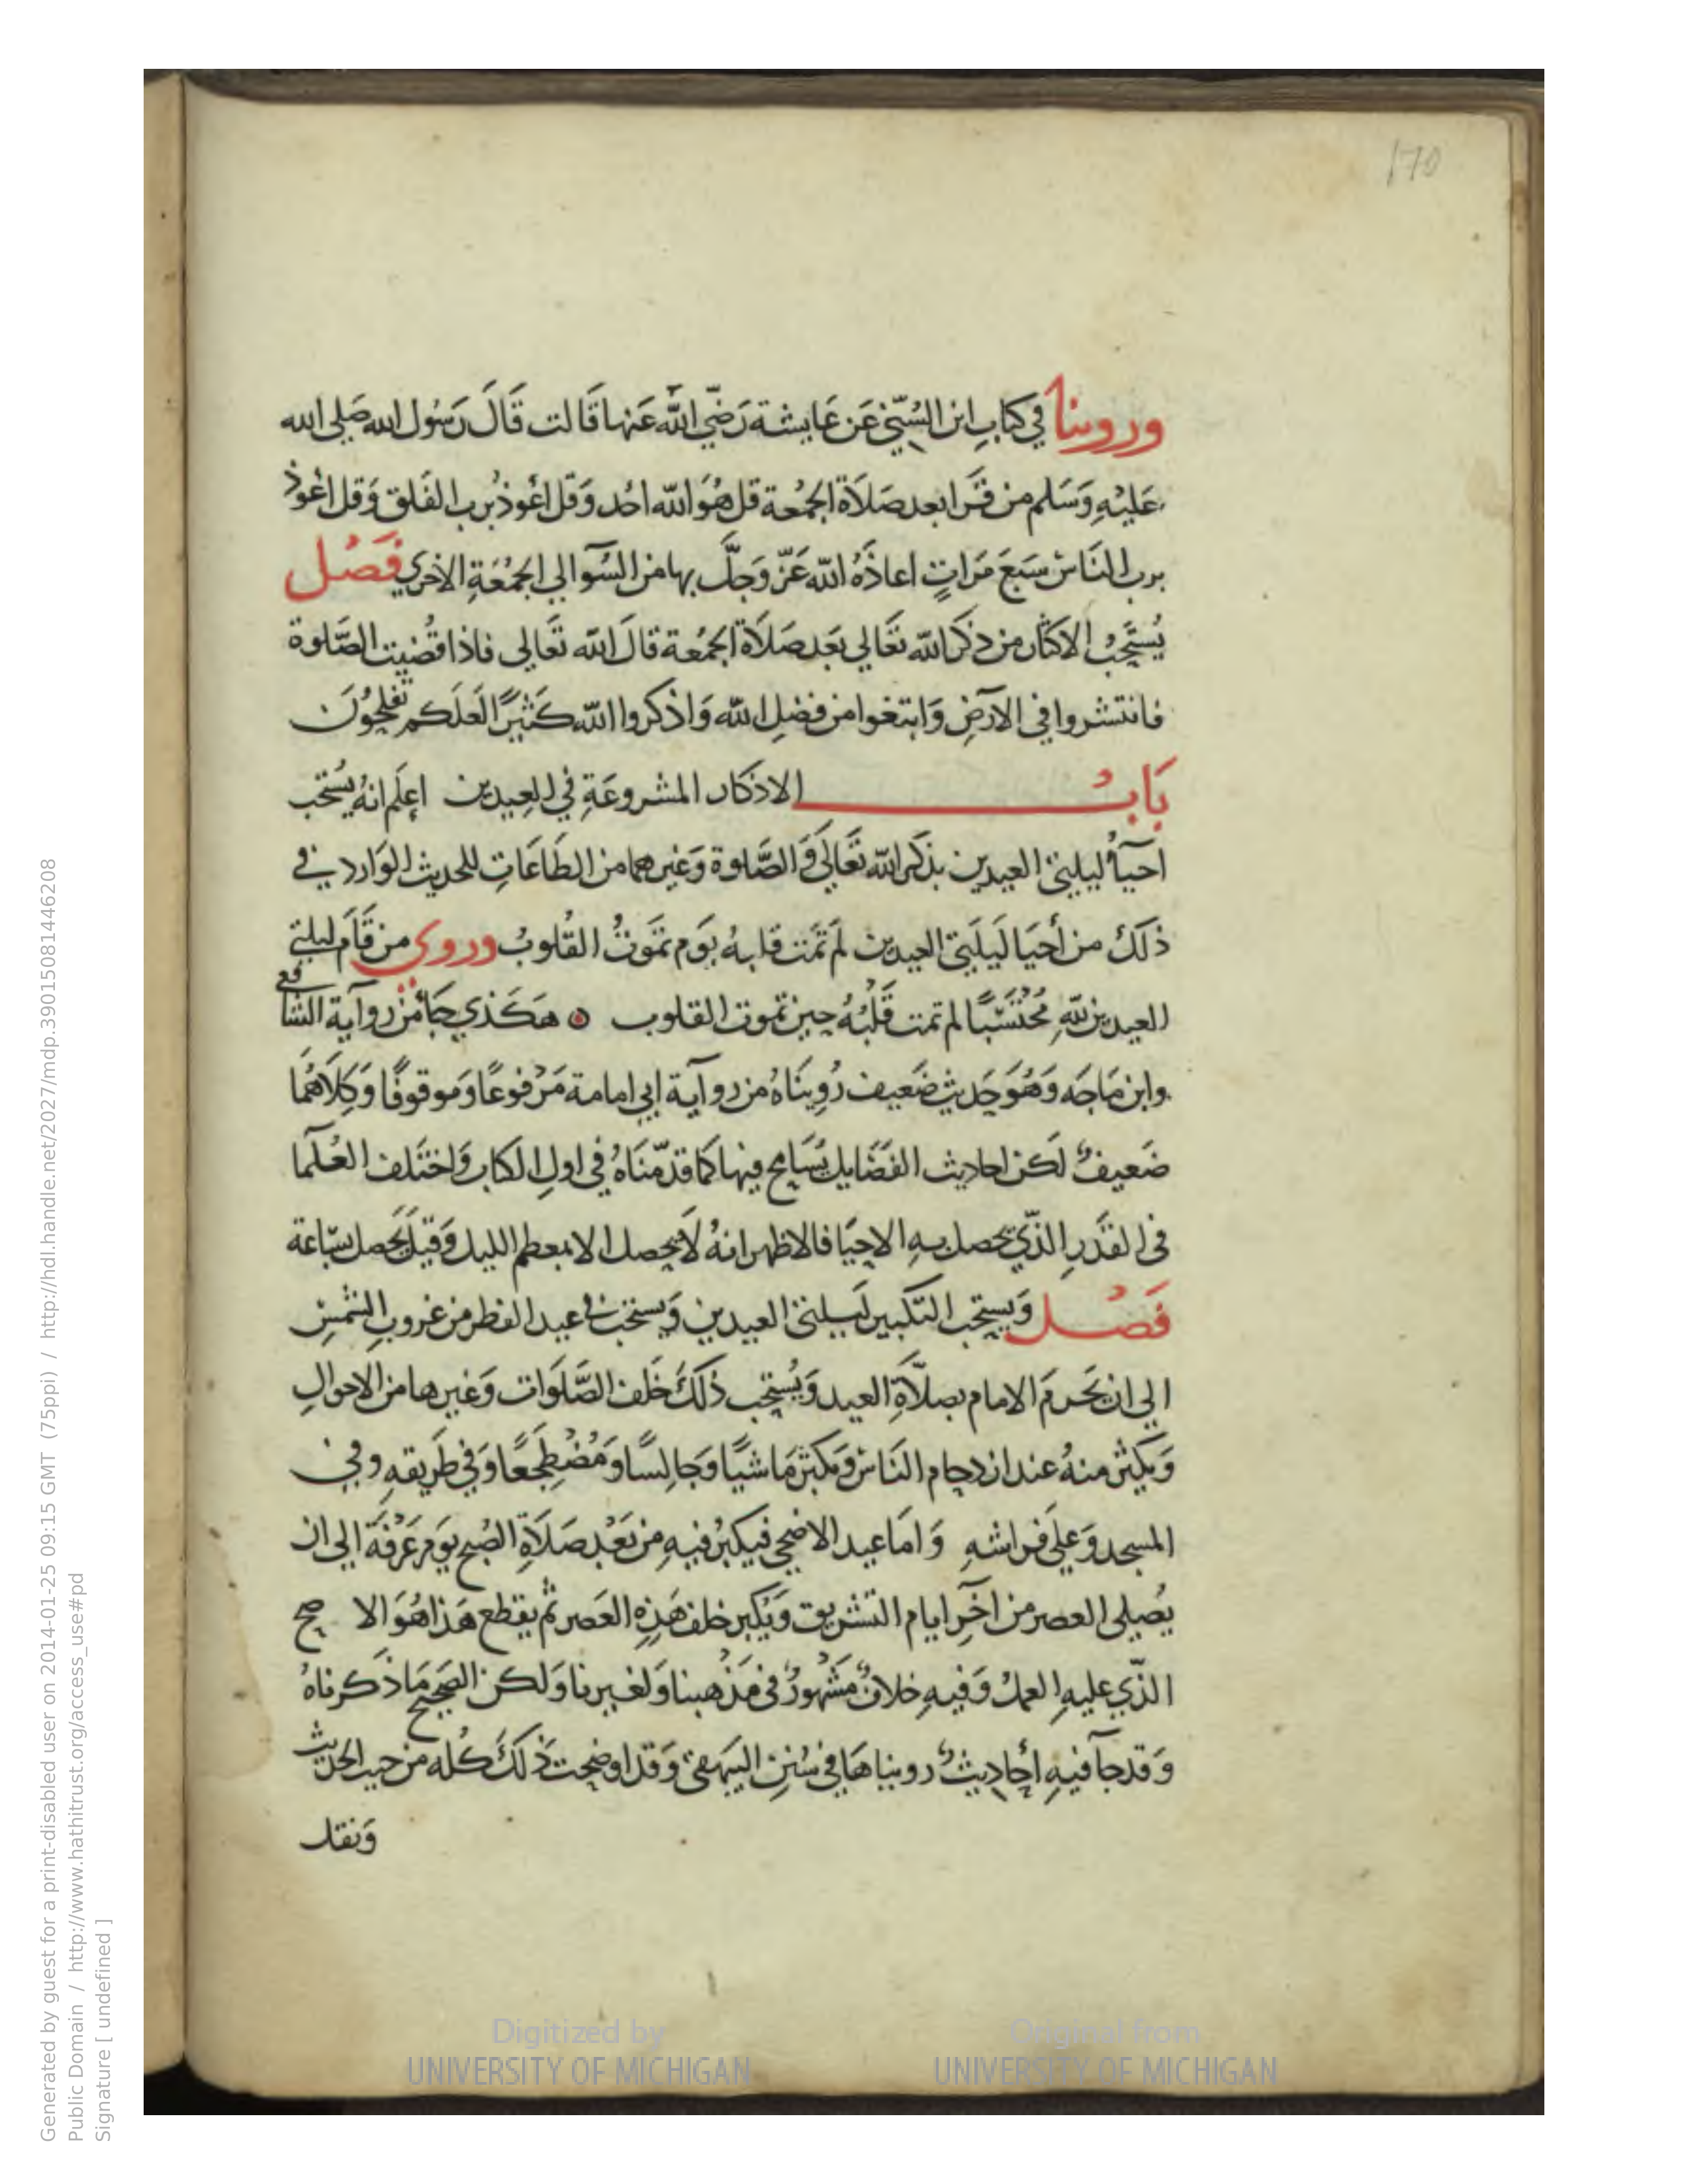 170
وروينا في كتاب ابن السُنّي عَن عَايشة رَضِي الله عَنها قَالت قَالَ رَسُول الله صَلى الله
عَلَيْهِ وَسَلم من قَرا بعد صَلَاة الجمُعة قل هُوَ الله احَد وَقل اعُوذ برب الفَلق وَقل اعُوذ
برب النَاس سَبعَ مَراتٍ اعاذَهُ الله عَزّ وَجلَّ بها من السُوٓا لي الجمُعَةِ الاخري فَصْل
يُستَحَبُ الاكثار من ذكر الله تَعَالي بَعد صَلَاة الجمُعة قالَ الله تَعَالى فاذا قُضيت الصَّلوة
فانتشروا في الارَضِ وَابتغوا من فضلِ الله وَاذكروا الله كَثيرًا لَعَلَكم تفلحُونَ
بَابُ الاذكار المشروعَةِ في العِيدين اعِلَم انهُ يُستَحب
احيآءُ ليلتي العيدين بذكر الله تَعَالَى وَالصَّلوة وَغيرهما من الطَاعَاتِ للحديث الوَارد في
ذلكَ من أحيَا لَيلَتي العيدين لَم تَمت قلبهُ يوَم تمَوتُ القُلوبُ وروي من قَامَ ليلتي
العيدين للهِ مُحْتَسَبًا لم تمت قَلْبُهُ حِين تموت القلوب هَكَذي جَآ من روآية الشافعي
وابن مَاجَه وَهُوَ حَديث ضَعيف رُوِينَاهُ من روآية ابي امامة مَرْفوعًا وَموقوفًا وَكِلاَهُمَا
ضَعيفٌ لَكن احاديث الفَضَايل يُسَامح فيها كمَا قدّمنَاهُ في اولِ الكتاب وَاختَلف العُلَمآ
فى القَدَرِ الذّي يحصل بهِ الاحيَا فالاظهر انهُ لاَ يحصل الا بمعظم الليل وَقيلَ يَحصل بسَاعة
فَصْل وَيستحب التكبير لَيلتي العيدين وَيستحب في عيد الفطر من غروبِ الشَمْسِ
الي ان يَحَرمَ الامام بصلَآةِ العيد وَيُستحب ذَلكَ خَلف الصَّلَوات وَغيرها من الاحوالِ
وَيكثر منهُ عند ازدحام النَاس وَيكبر مَاشيًا وَجَالِسًا وَمُضْطَجعًا وَفي طَريقهِ وفي
المسجد وَعلَى فراشهِ وَامَا عيد الاضحى فيكبُر فيهِ من بَعْد صَلَاةِ الصُبح يوَم عَرَفة الي ان
يُصلى العصر من اَخرِ ايام التشريق وَيُكبر خلف هَذِه العَصر ثم يقطع هَذا هُوَ الا صح
الذّي عليهِ العمل وَفيهِ خلافٌ مَشْهورٌ فى مَذْهبنا وَلغيرنا وَلكن الصَحيح مَا ذكرناهُ
وَقد جآ فيهِ أحَادِيثٌ روينا هَا في سُننِ البيهقي وَقد اوضحت ذَلكَ كُله من حيث الحَديث
وَنقل
Generated by guest for a print-disabled user on 2014-01-25 09:15 GMT (75ppi) / http://hdl.handle.net/2027/mdp.39015081446208
Public Domain / http://www.hathitrust.org/access_use#pd
Signature [ undefined ]
Digitized by
UNIVERSITY OF MICHIGAN
Original from
UNIVERSITY OF MICHIGAN